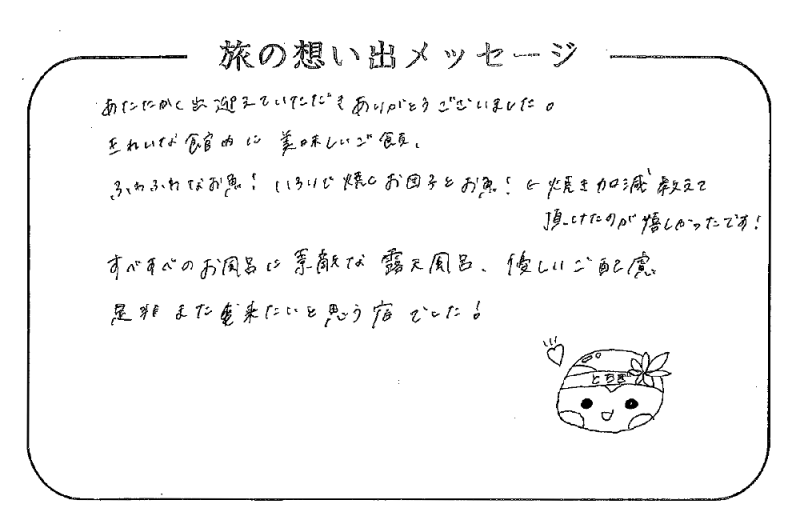 旅の想い出メッセージ
あたたかく出迎えていただきありがとうございました。
きれいな館内に美味しいご飯。
ふわふわなお魚！いろりで焼くお団子とお魚！←焼き加減教えて
頂けたのが嬉しかったです！
すべすべのお風呂に素敵な露天風呂、優しいご配慮
是非また来たいと思う宿でした！
とちぎ